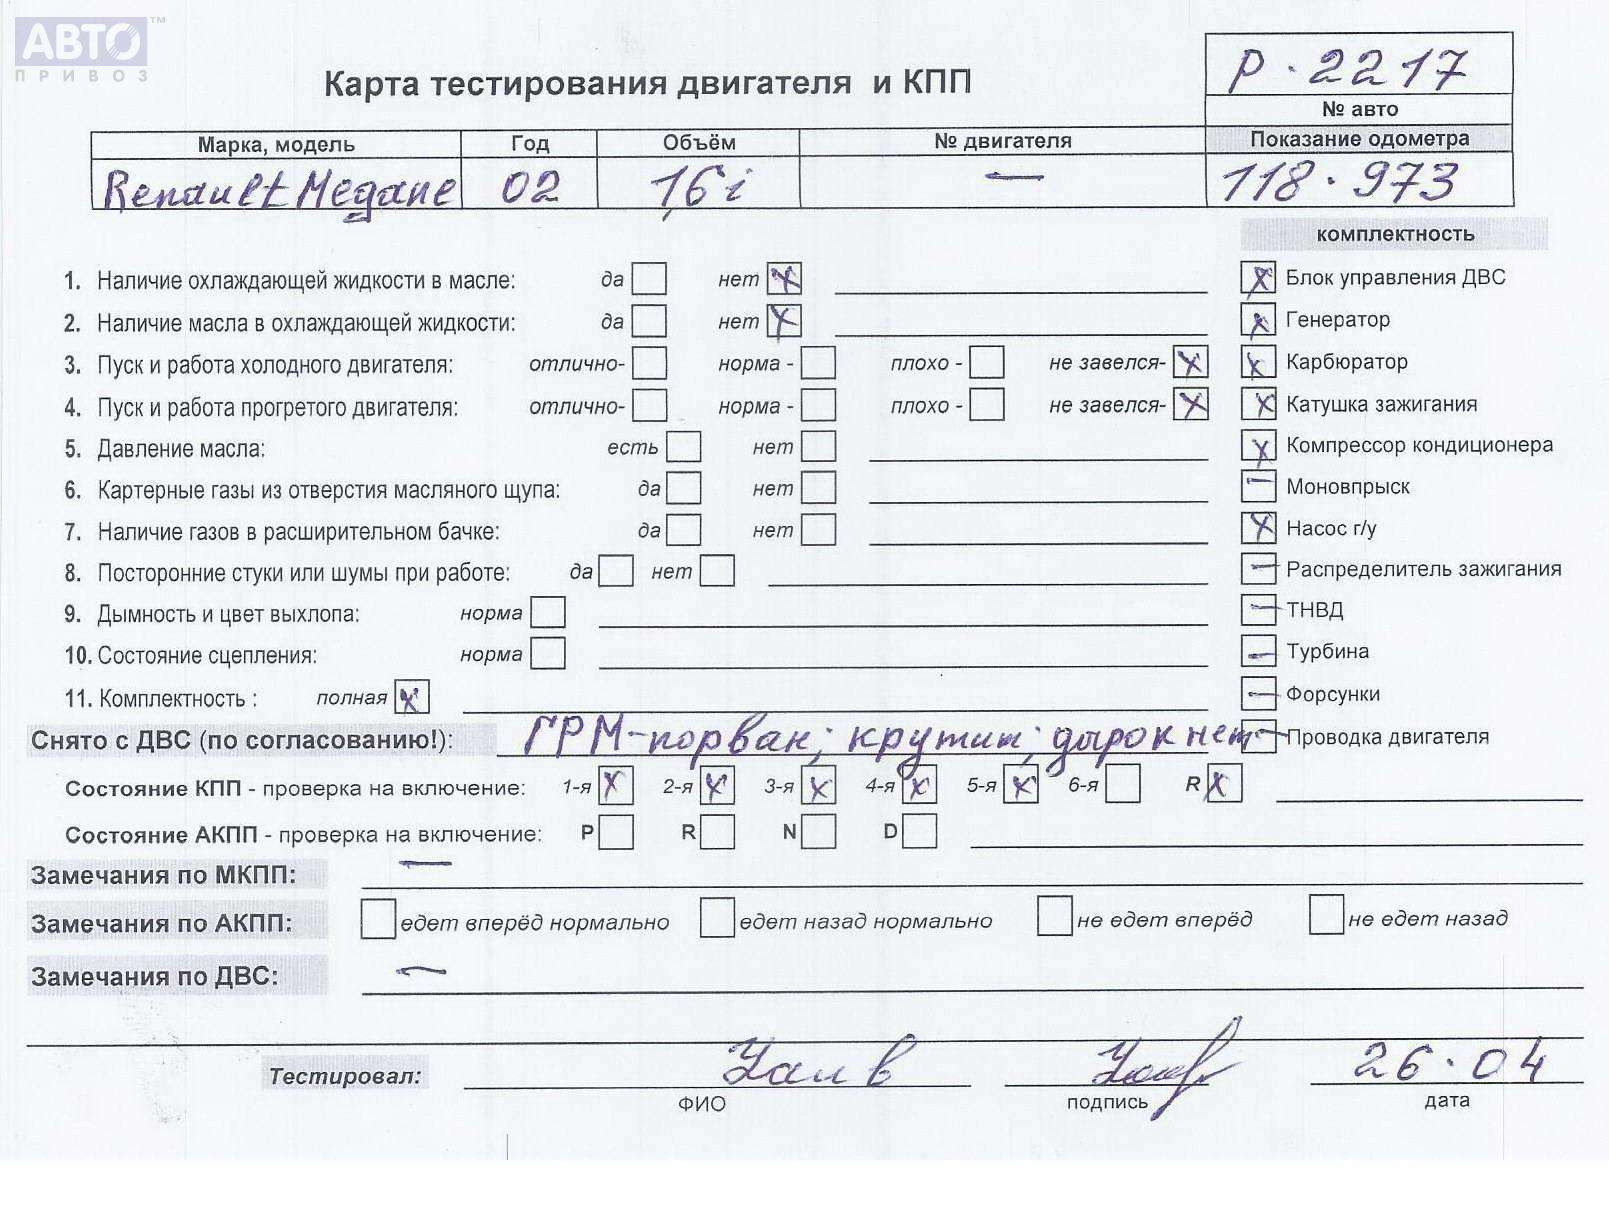 АВТО™
ПРИВОЗ
Карта тестирования двигателя и КПП
Р·2217
№ авто
Марка, модель Год Объём № двигателя Показание одометра
Renault Megane 02 1,6 i — 118·973
комплектность
1. Наличие охлаждающей жидкости в масле: да нет X
X Блок управления ДВС
2. Наличие масла в охлаждающей жидкости: да нет X
X Генератор
3. Пуск и работа холодного двигателя: отлично- норма - плохо - не завелся- X
X Карбюратор
4. Пуск и работа прогретого двигателя: отлично- норма - плохо - не завелся- X
X Катушка зажигания
5. Давление масла: есть нет
X Компрессор кондиционера
6. Картерные газы из отверстия масляного щупа: да нет
— Моновпрыск
7. Наличие газов в расширительном бачке: да нет
X Насос г/у
8. Посторонние стуки или шумы при работе: да нет
— Распределитель зажигания
9. Дымность и цвет выхлопа: норма
— ТНВД
10. Состояние сцепления: норма
— Турбина
11. Комплектность : полная X
— Форсунки
Снято с ДВС (по согласованию!): ГРМ-порван; крутит; дырок нет
— Проводка двигателя
Состояние КПП - проверка на включение: 1-я X 2-я X 3-я X 4-я X 5-я X 6-я R X
Состояние АКПП - проверка на включение: P R N D
Замечания по МКПП: —
Замечания по АКПП: едет вперёд нормально едет назад нормально не едет вперёд не едет назад
Замечания по ДВС: —
Тестировал: 26·04
ФИО подпись дата